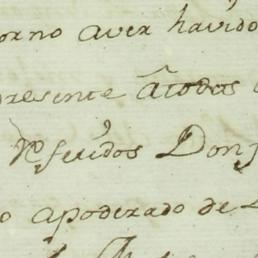 orno aver havido
presente â todas
Referidos Don
o apoderado de